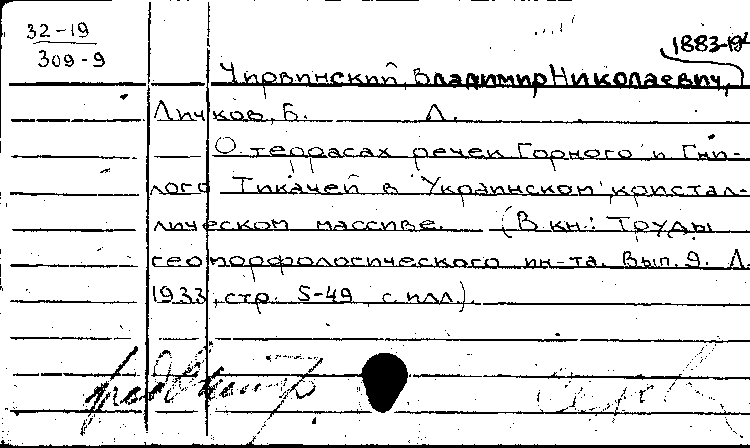 32-19
309-9
1883-19
Чирвинский, Владимир Николаевич,
Личков, Б. Л.
О террасах речек Горного и Гни-
лого Тикачей в Украинском кристал-
лическом массиве. (В кн.: Труды
геоморфологического ин-та. Вып. 9. Л.
1933, стр. 5-49, с илл.).